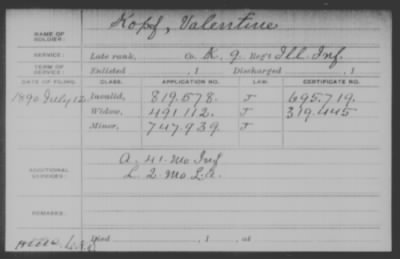 NAME OF SOLDIER: Kopf, Valentine
SERVICE: Late rank, Co. K, 9 Reg't Ill. Inf.
TERM OF SERVICE: Enlisted , 1 Discharged , 1
DATE OF FILING. CLASS. APPLICATION NO. LAW. CERTIFICATE NO.
1890 July 12 Invalid, 819.578. J 695.719.
Widow, 491.112. J 319.445
Minor, 747.939. J
ADDITIONAL SERVICES: A. 41. Mo Inf
L. 2. Mo L.A.
REMARKS:
Died , 1 , at